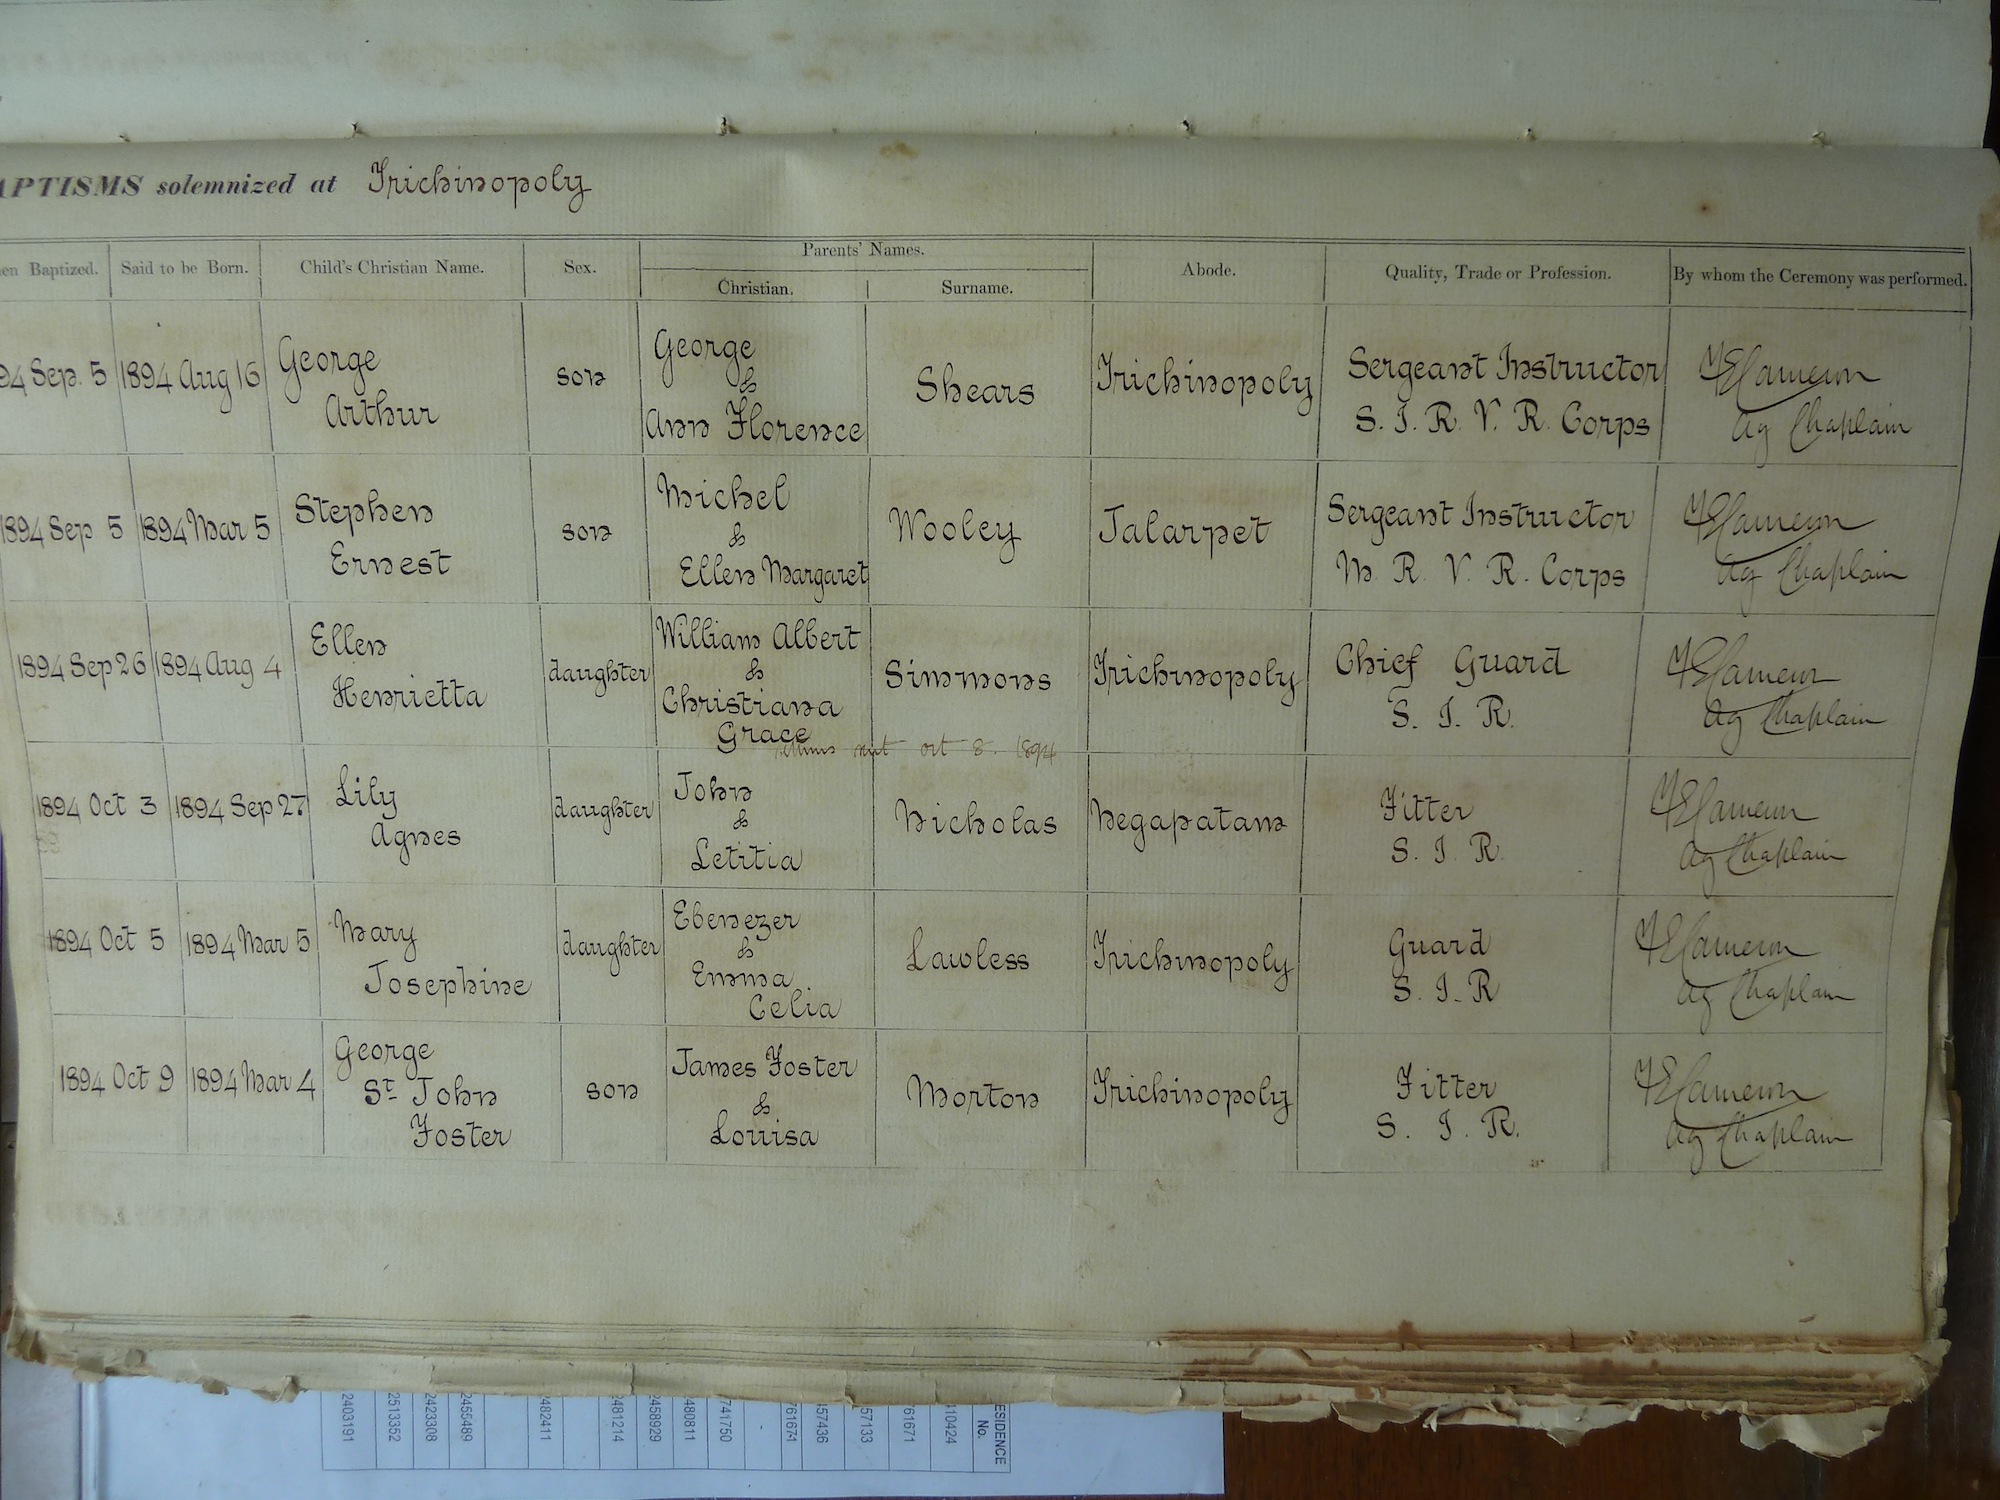 APTISMS solemnized at Trichinopoly
en Baptized. Said to be Born. Child's Christian Name. Sex. Parents' Names. Abode. Quality, Trade or Profession. By whom the Ceremony was performed.
Christian. Surname.
94 Sep. 5 1894 Aug 16 George Arthur son George & Ann Florence Shears Trichinopoly Sergeant Instructor S. I. R. V. R. Corps Cameron Ag Chaplain
1894 Sep 5 1894 Mar 5 Stephen Ernest son Michel & Ellen Margaret Wooley Jalarpet Sergeant Instructor M. R. V. R. Corps Cameron Ag Chaplain
1894 Sep 26 1894 Aug 4 Ellen Henrietta daughter William Albert & Christiana Grace Simmons Trichinopoly Chief Guard S. I. R. Cameron Ag Chaplain
oct 8. 1894
1894 Oct 3 1894 Sep 27 Lily Agnes daughter John & Letitia Nicholas Negapatam Fitter S. I. R. Cameron Ag Chaplain
1894 Oct 5 1894 Mar 5 Mary Josephine daughter Ebenezer & Emma Celia Lawless Trichinopoly Guard S. I. R Cameron Ag Chaplain
1894 Oct 9 1894 Mar 4 George St. John Foster son James Foster & Louisa Morton Trichinopoly Fitter S. I. R. Cameron Ag Chaplain
ESIDENCE
No.
10424
61671
57133
57436
76167-1
741750
480811
2458929
2481214
2482411
2455489
2423308
2513352
2403191